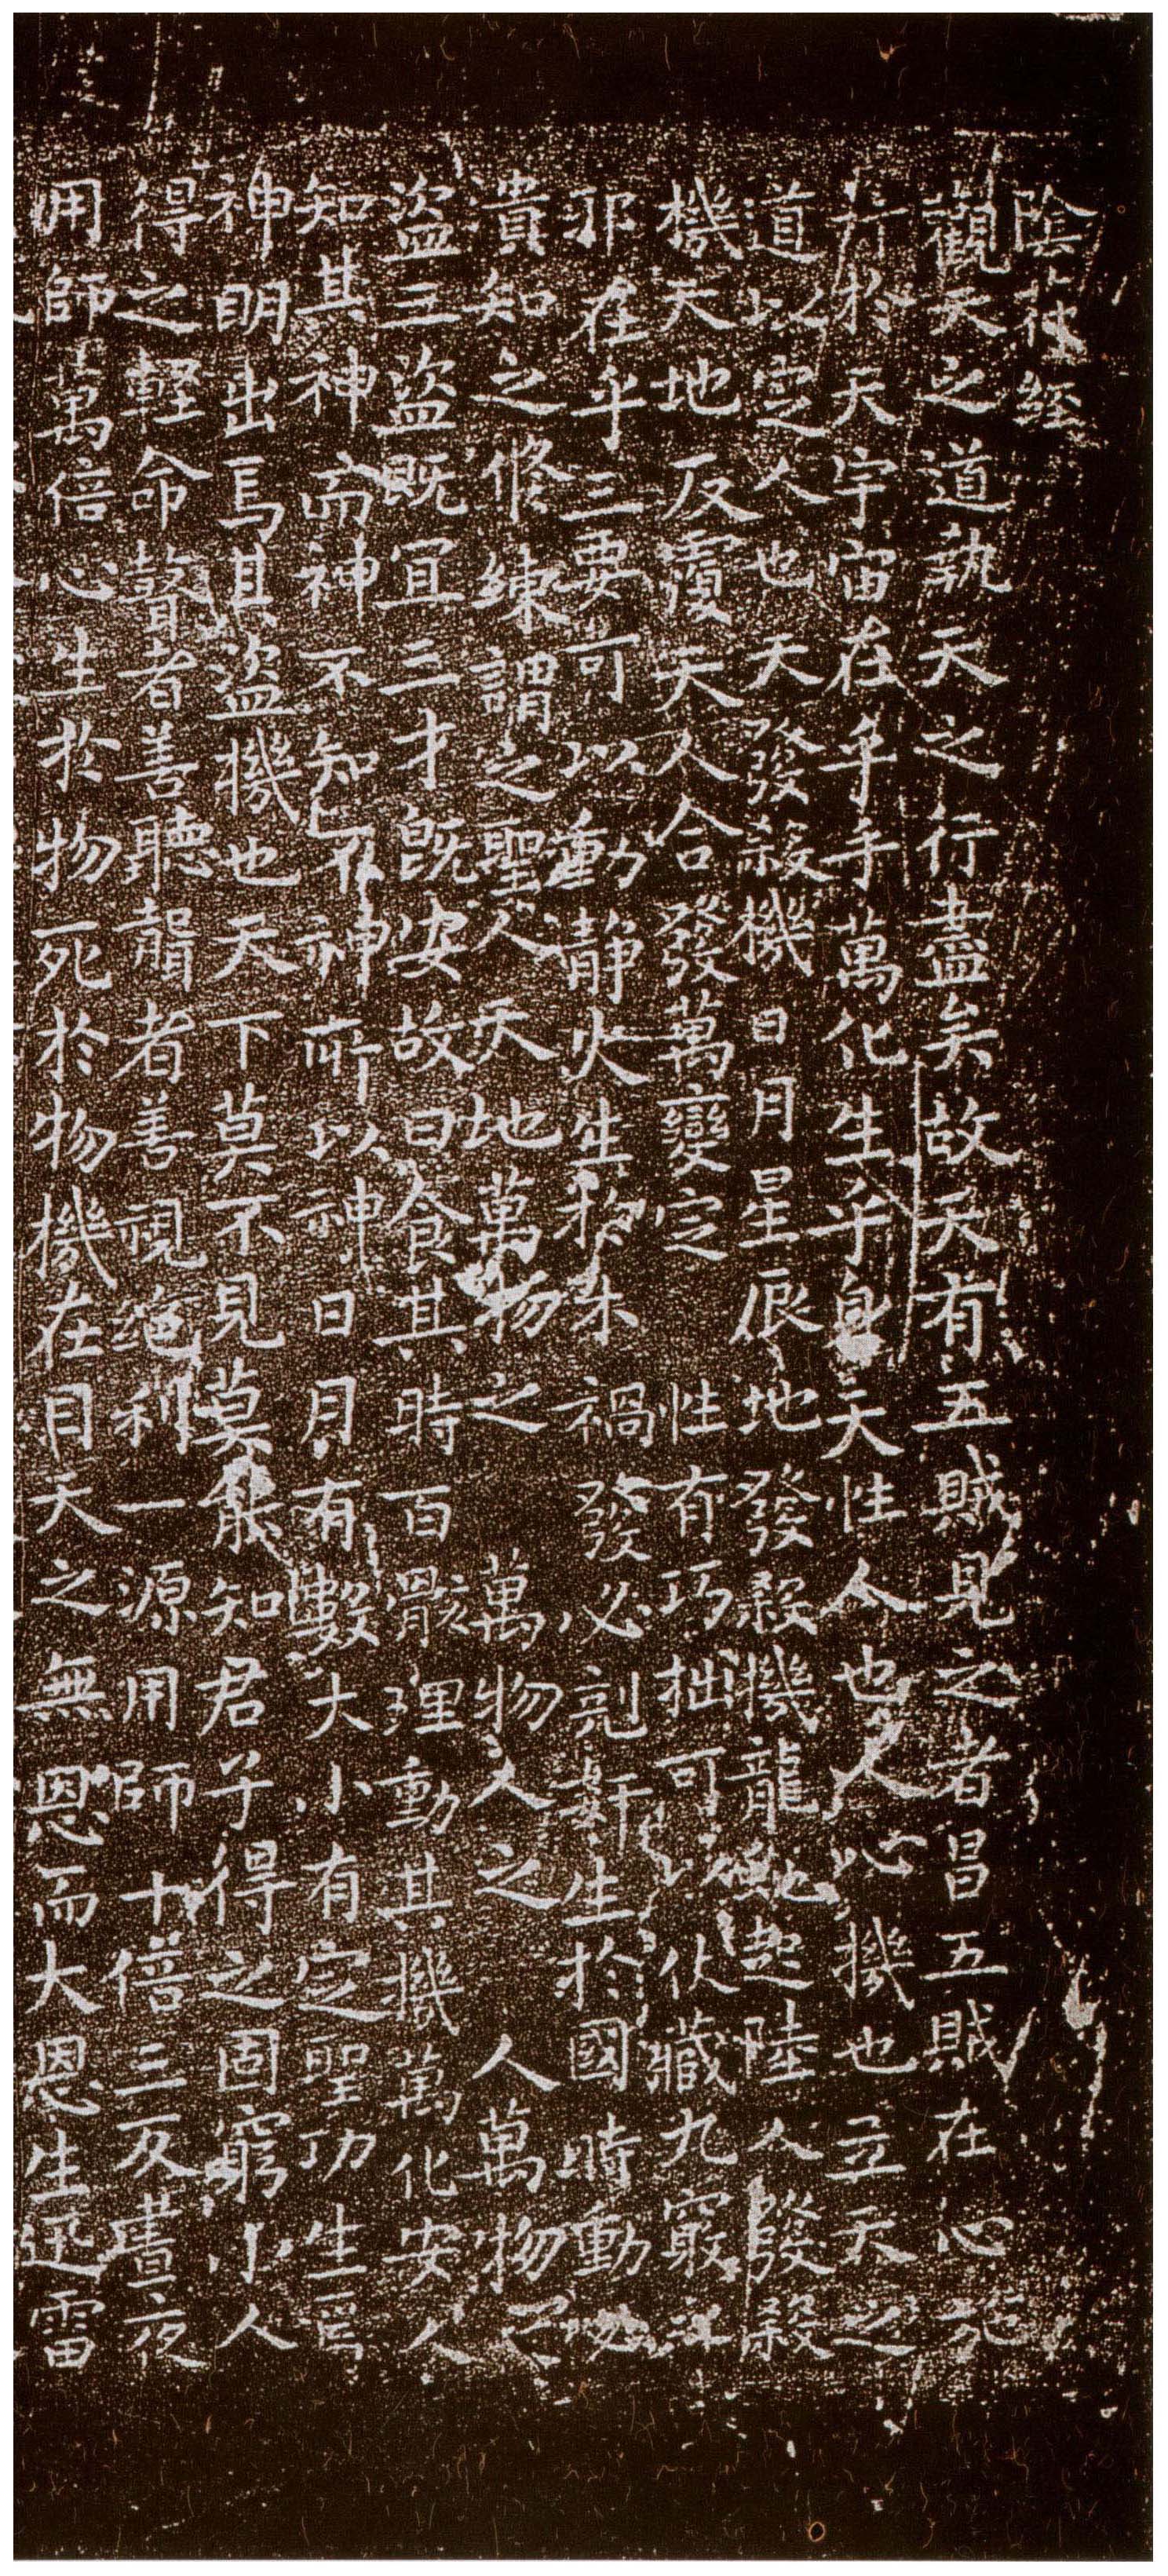 陰符經
觀天之道執天之行盡矣故天有五賊見之者昌五賊在心施
行於天宇宙在乎手萬化生乎身天性人也人心機也立天之
道以定人也天發殺機日月星辰地發殺機龍虵起陸人發殺
機天地反覆天人合發萬變定性有巧拙可以伏藏九竅之
邪在乎三要可以動靜火生於木禍發必剋姧生於國時動必
潰知之脩練謂之聖人天地萬物之萬物人之人萬物之
盜三盜既宜三才既安故曰食其時百骸理動其機萬化安人
知其神而神不知不神所以神日月有數大小有定聖功生焉
神明出焉其盜機也天下莫不見莫能知君子得之固窮小人
得之輕命瞽者善聽聾者善視絕利一源用師十倍三反晝夜
用師萬倍心生於物死於物機在目天之無恩而大恩生迅雷